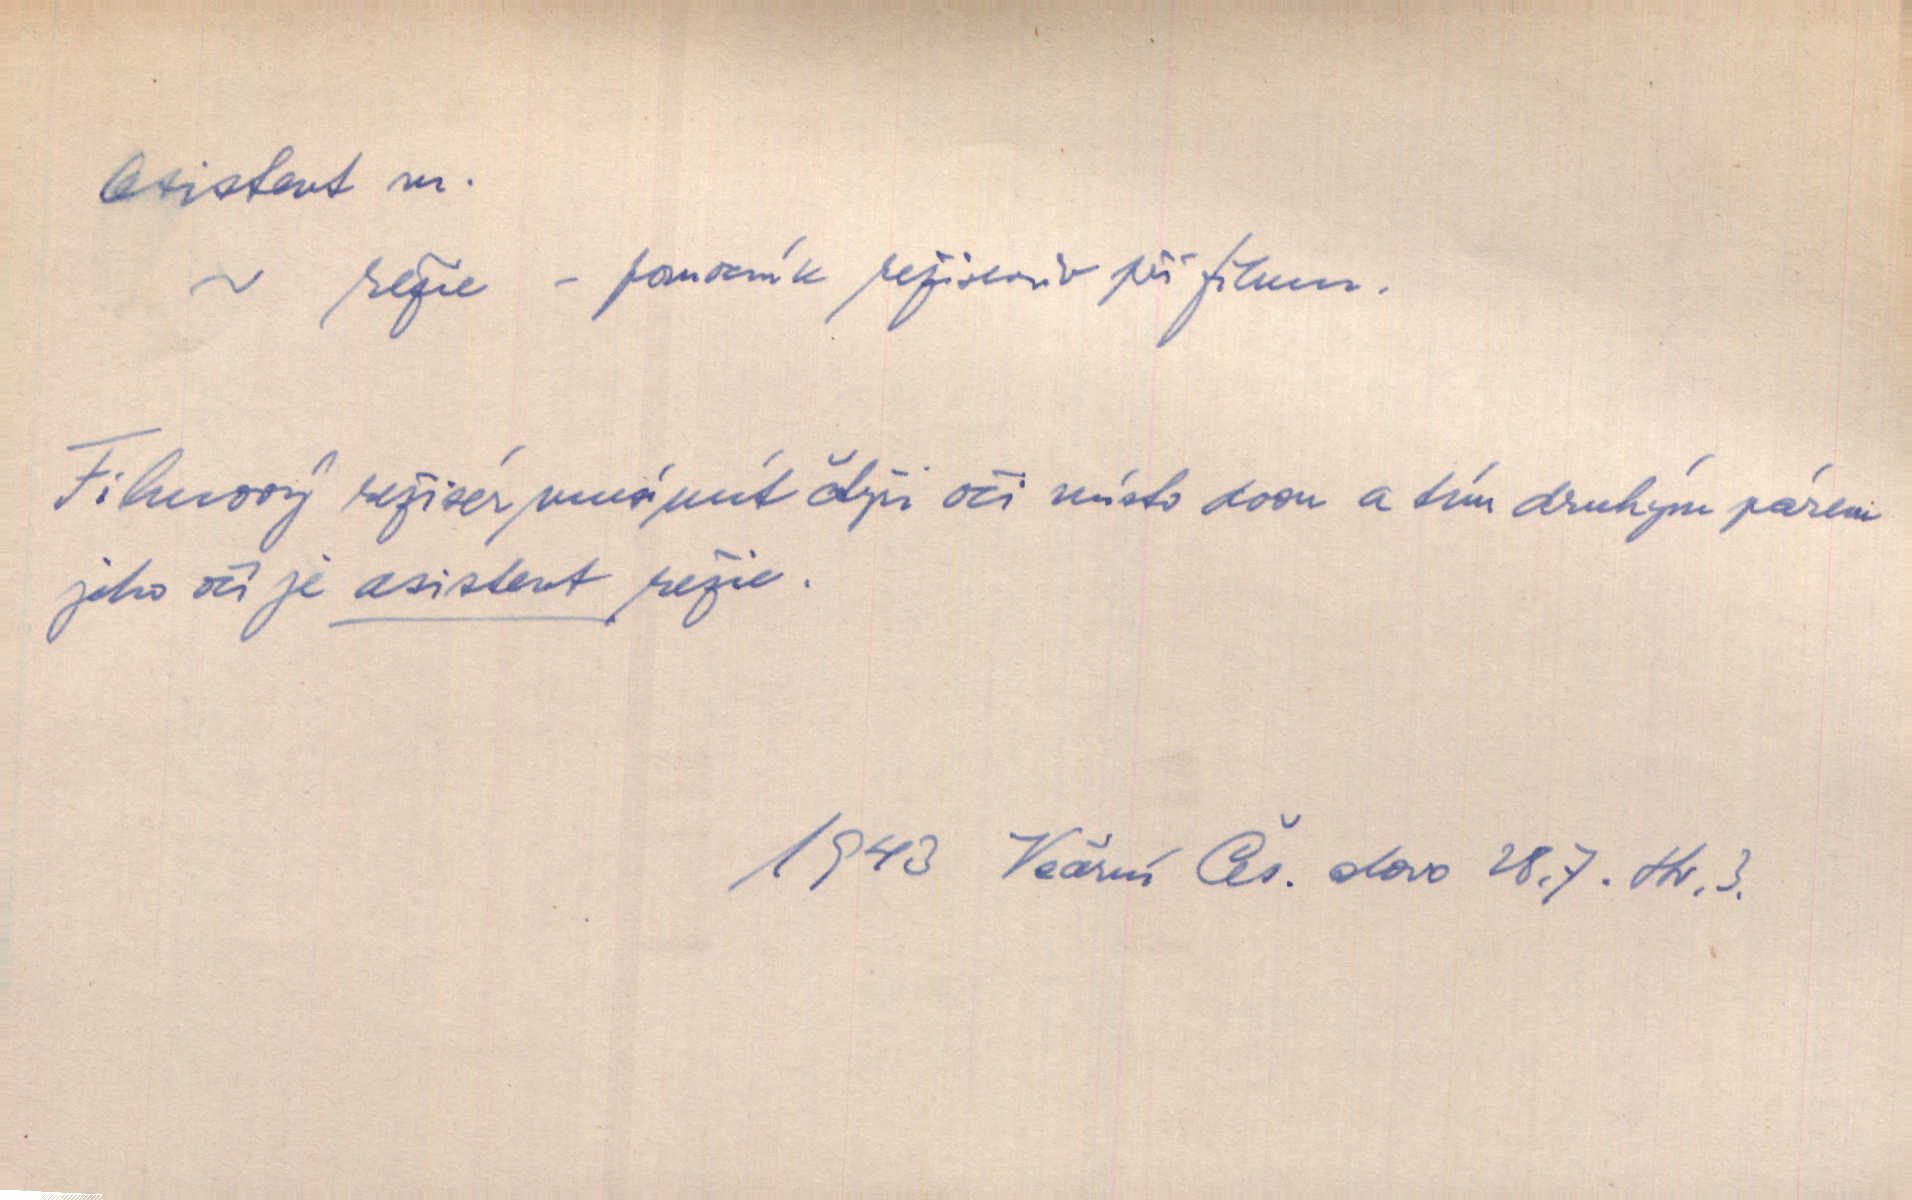 Asistent m.
~ režie - pomocník režisérův při filmu.
Filmový režisér musí mít čtyři oči místo dvou a tím druhým párem
jeho očí je asistent režie.
1943 Več­erní Čes. slovo 28.7. str. 3.